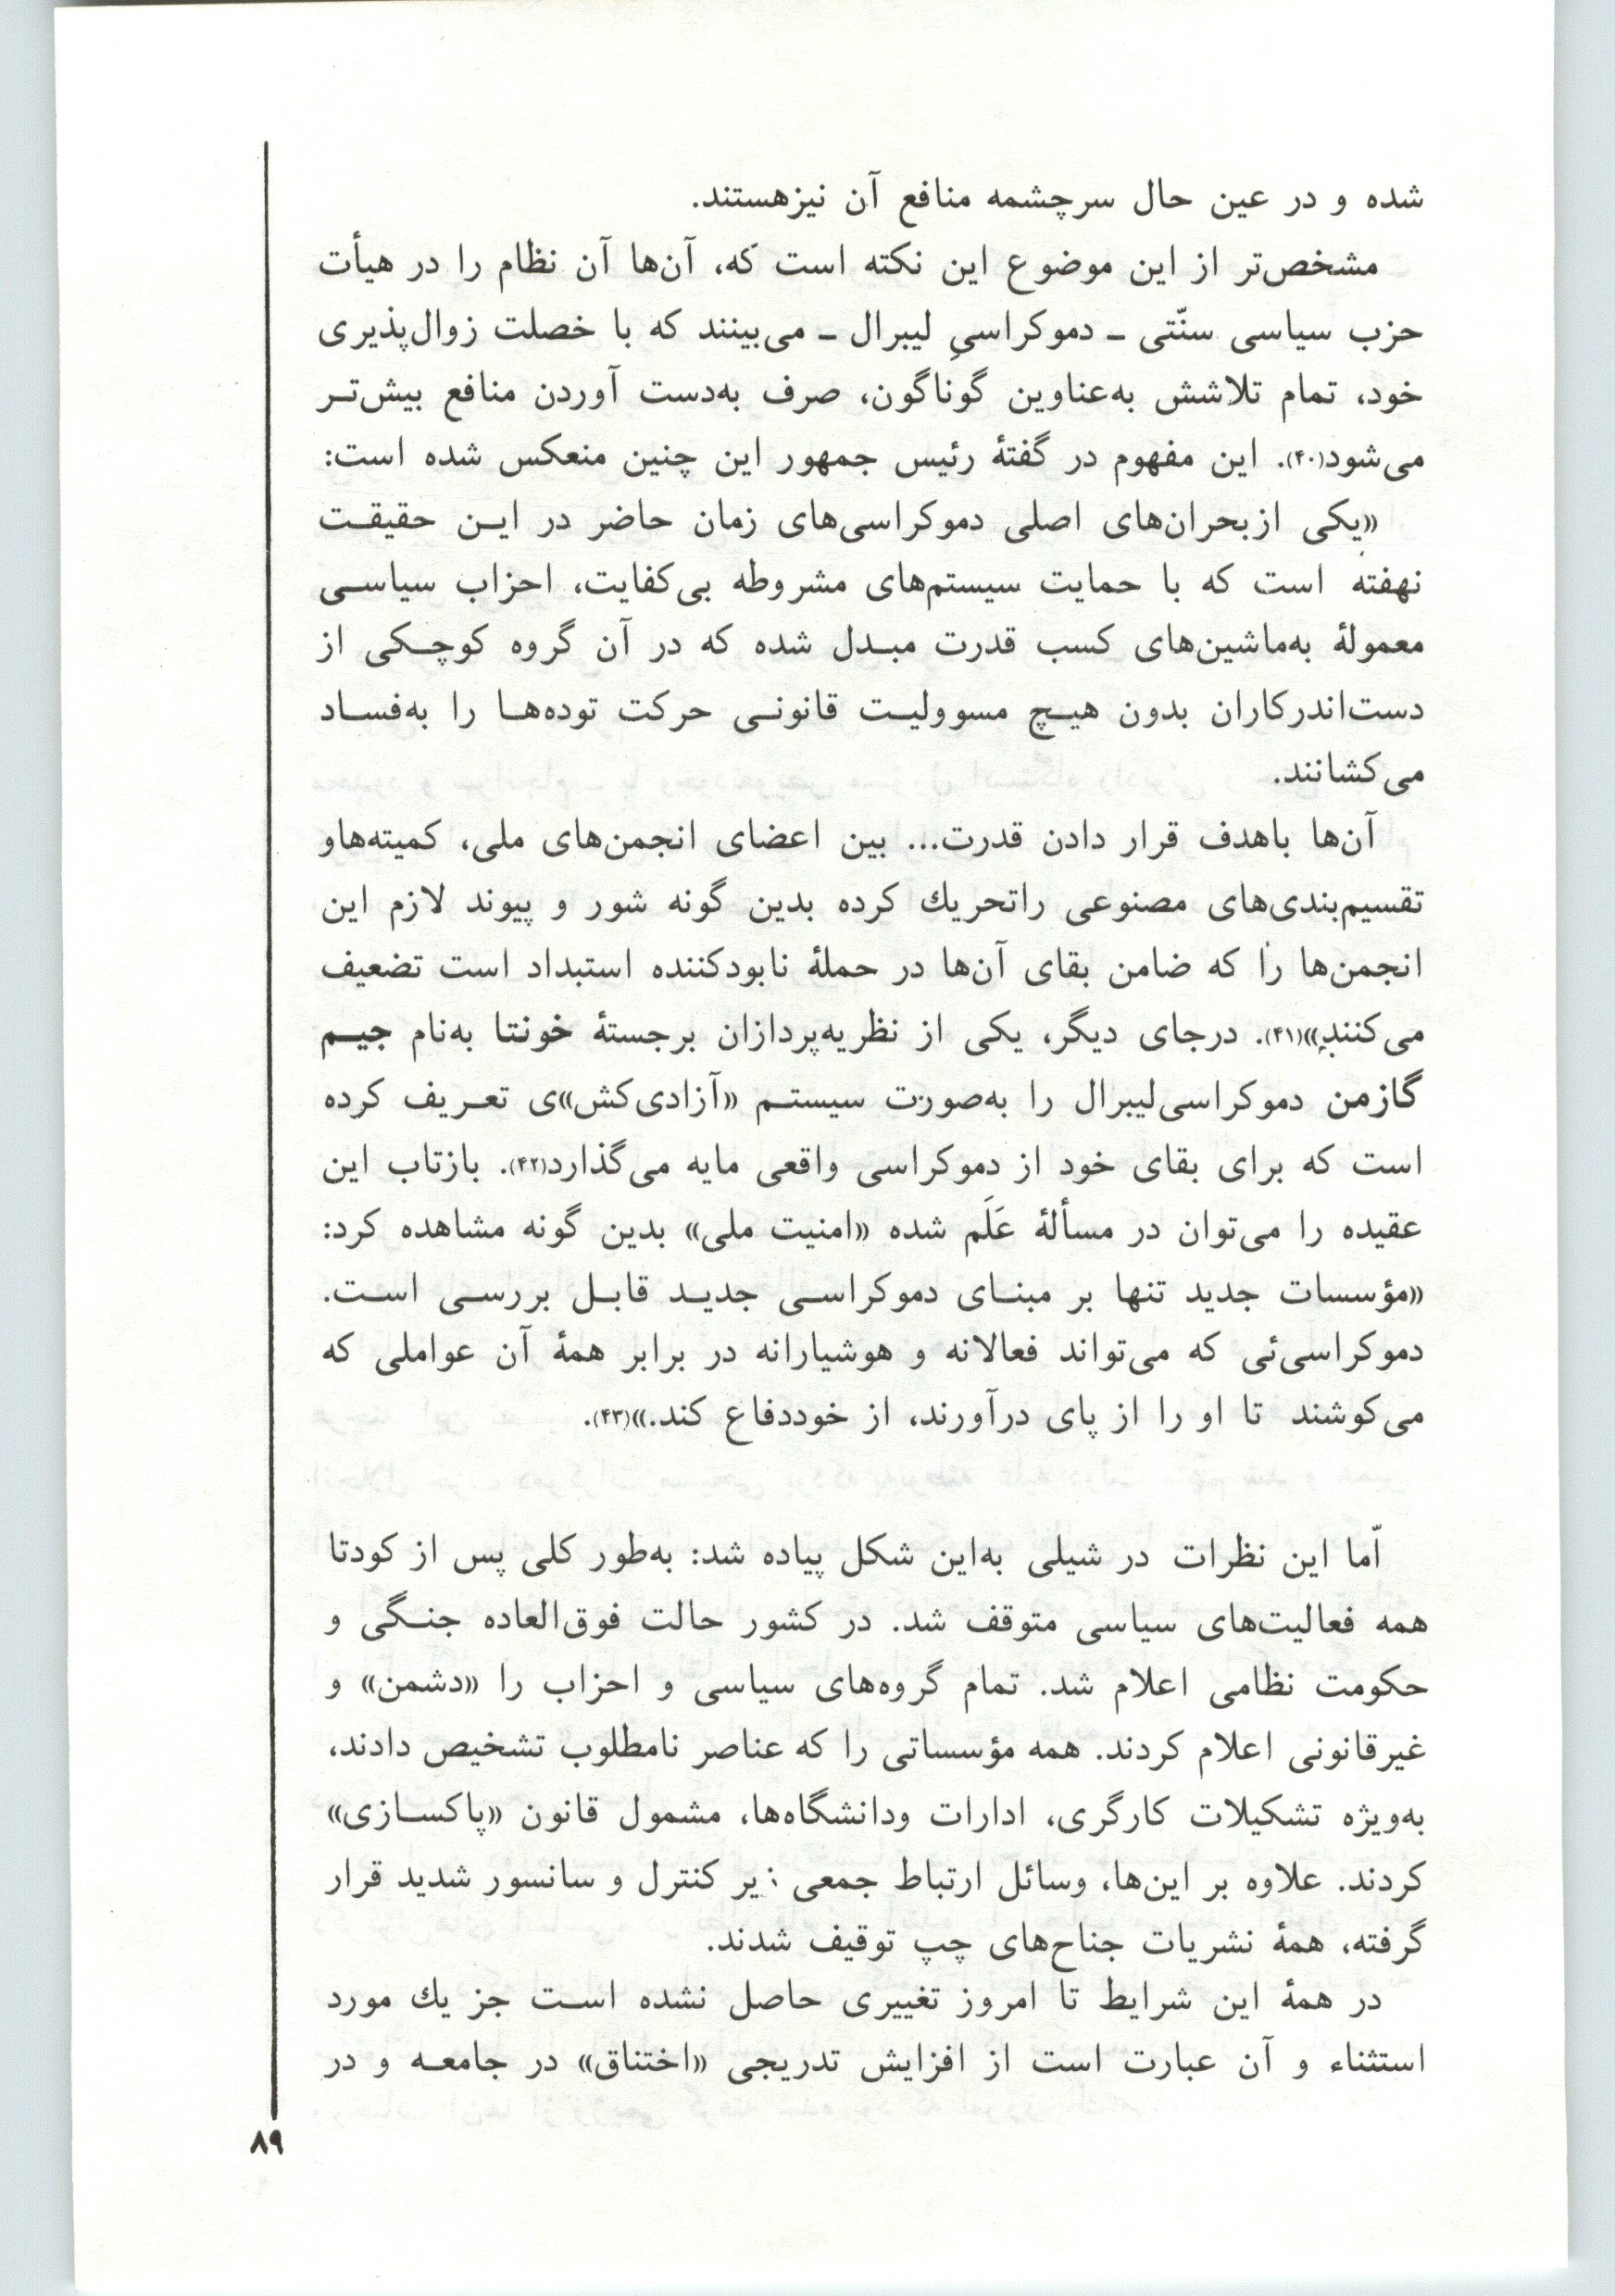 شده و در عین حال سرچشمه منافع آن نیزهستند.
مشخص‌تر از این موضوع این نکته است که، آن‌ها آن نظام را در هیأت
حزب سیاسی سنّتی ـ دموکراسیِ لیبرال ـ می‌بینند که با خصلت زوال‌پذیری
خود، تمام تلاشش به‌عناوین گوناگون، صرف به‌دست آوردن منافع بیش‌تر
می‌شود(۴۰). این مفهوم در گفتهٔ رئیس جمهور این چنین منعکس شده است:
«یکی ازبحران‌های اصلی دموکراسی‌های زمان حاضر در این حقیقت
نهفته است که با حمایت سیستم‌های مشروطه بی‌کفایت، احزاب سیاسی
معمولهٔ به‌ماشین‌های کسب قدرت مبدل شده که در آن گروه کوچکی از
دست‌اندرکاران بدون هیچ مسوولیت قانونی حرکت توده‌ها را به‌فساد
می‌کشانند.
آن‌ها باهدف قرار دادن قدرت... بین اعضای انجمن‌های ملی، کمیته‌هاو
تقسیم‌بندی‌های مصنوعی راتحریك کرده بدین گونه شور و پیوند لازم این
انجمن‌ها را که ضامن بقای آن‌ها در حملهٔ نابودکننده استبداد است تضعیف
می‌کنند»(۴۱). درجای دیگر، یکی از نظریه‌پردازان برجستهٔ خونتا به‌نام جیم
گازمن دموکراسی‌لیبرال را به‌صورت سیستم «آزادی‌کش»ی تعریف کرده
است که برای بقای خود از دموکراسی واقعی مایه می‌گذارد(۴۲). بازتاب این
عقیده را می‌توان در مسألهٔ عَلَم شده «امنیت ملی» بدین گونه مشاهده کرد:
«مؤسسات جدید تنها بر مبنای دموکراسی جدید قابل بررسی است.
دموکراسی‌ئی که می‌تواند فعالانه و هوشیارانه در برابر همهٔ آن عواملی که
می‌کوشند تا او را از پای درآورند، از خوددفاع کند.»(۴۳).
امّا این نظرات در شیلی به‌این شکل پیاده شد: به‌طور کلی پس از کودتا
همه فعالیت‌های سیاسی متوقف شد. در کشور حالت فوق‌العاده جنگی و
حکومت نظامی اعلام شد. تمام گروه‌های سیاسی و احزاب را «دشمن» و
غیرقانونی اعلام کردند. همه مؤسساتی را که عناصر نامطلوب تشخیص دادند،
به‌ویژه تشکیلات کارگری، ادارات ودانشگاه‌ها، مشمول قانون «پاکسازی»
کردند. علاوه بر این‌ها، وسائل ارتباط جمعی زیر کنترل و سانسور شدید قرار
گرفته، همهٔ نشریات جناح‌های چپ توقیف شدند.
در همهٔ این شرایط تا امروز تغییری حاصل نشده است جز یك مورد
استثناء و آن عبارت است از افزایش تدریجی «اختناق» در جامعه و در
۸۹